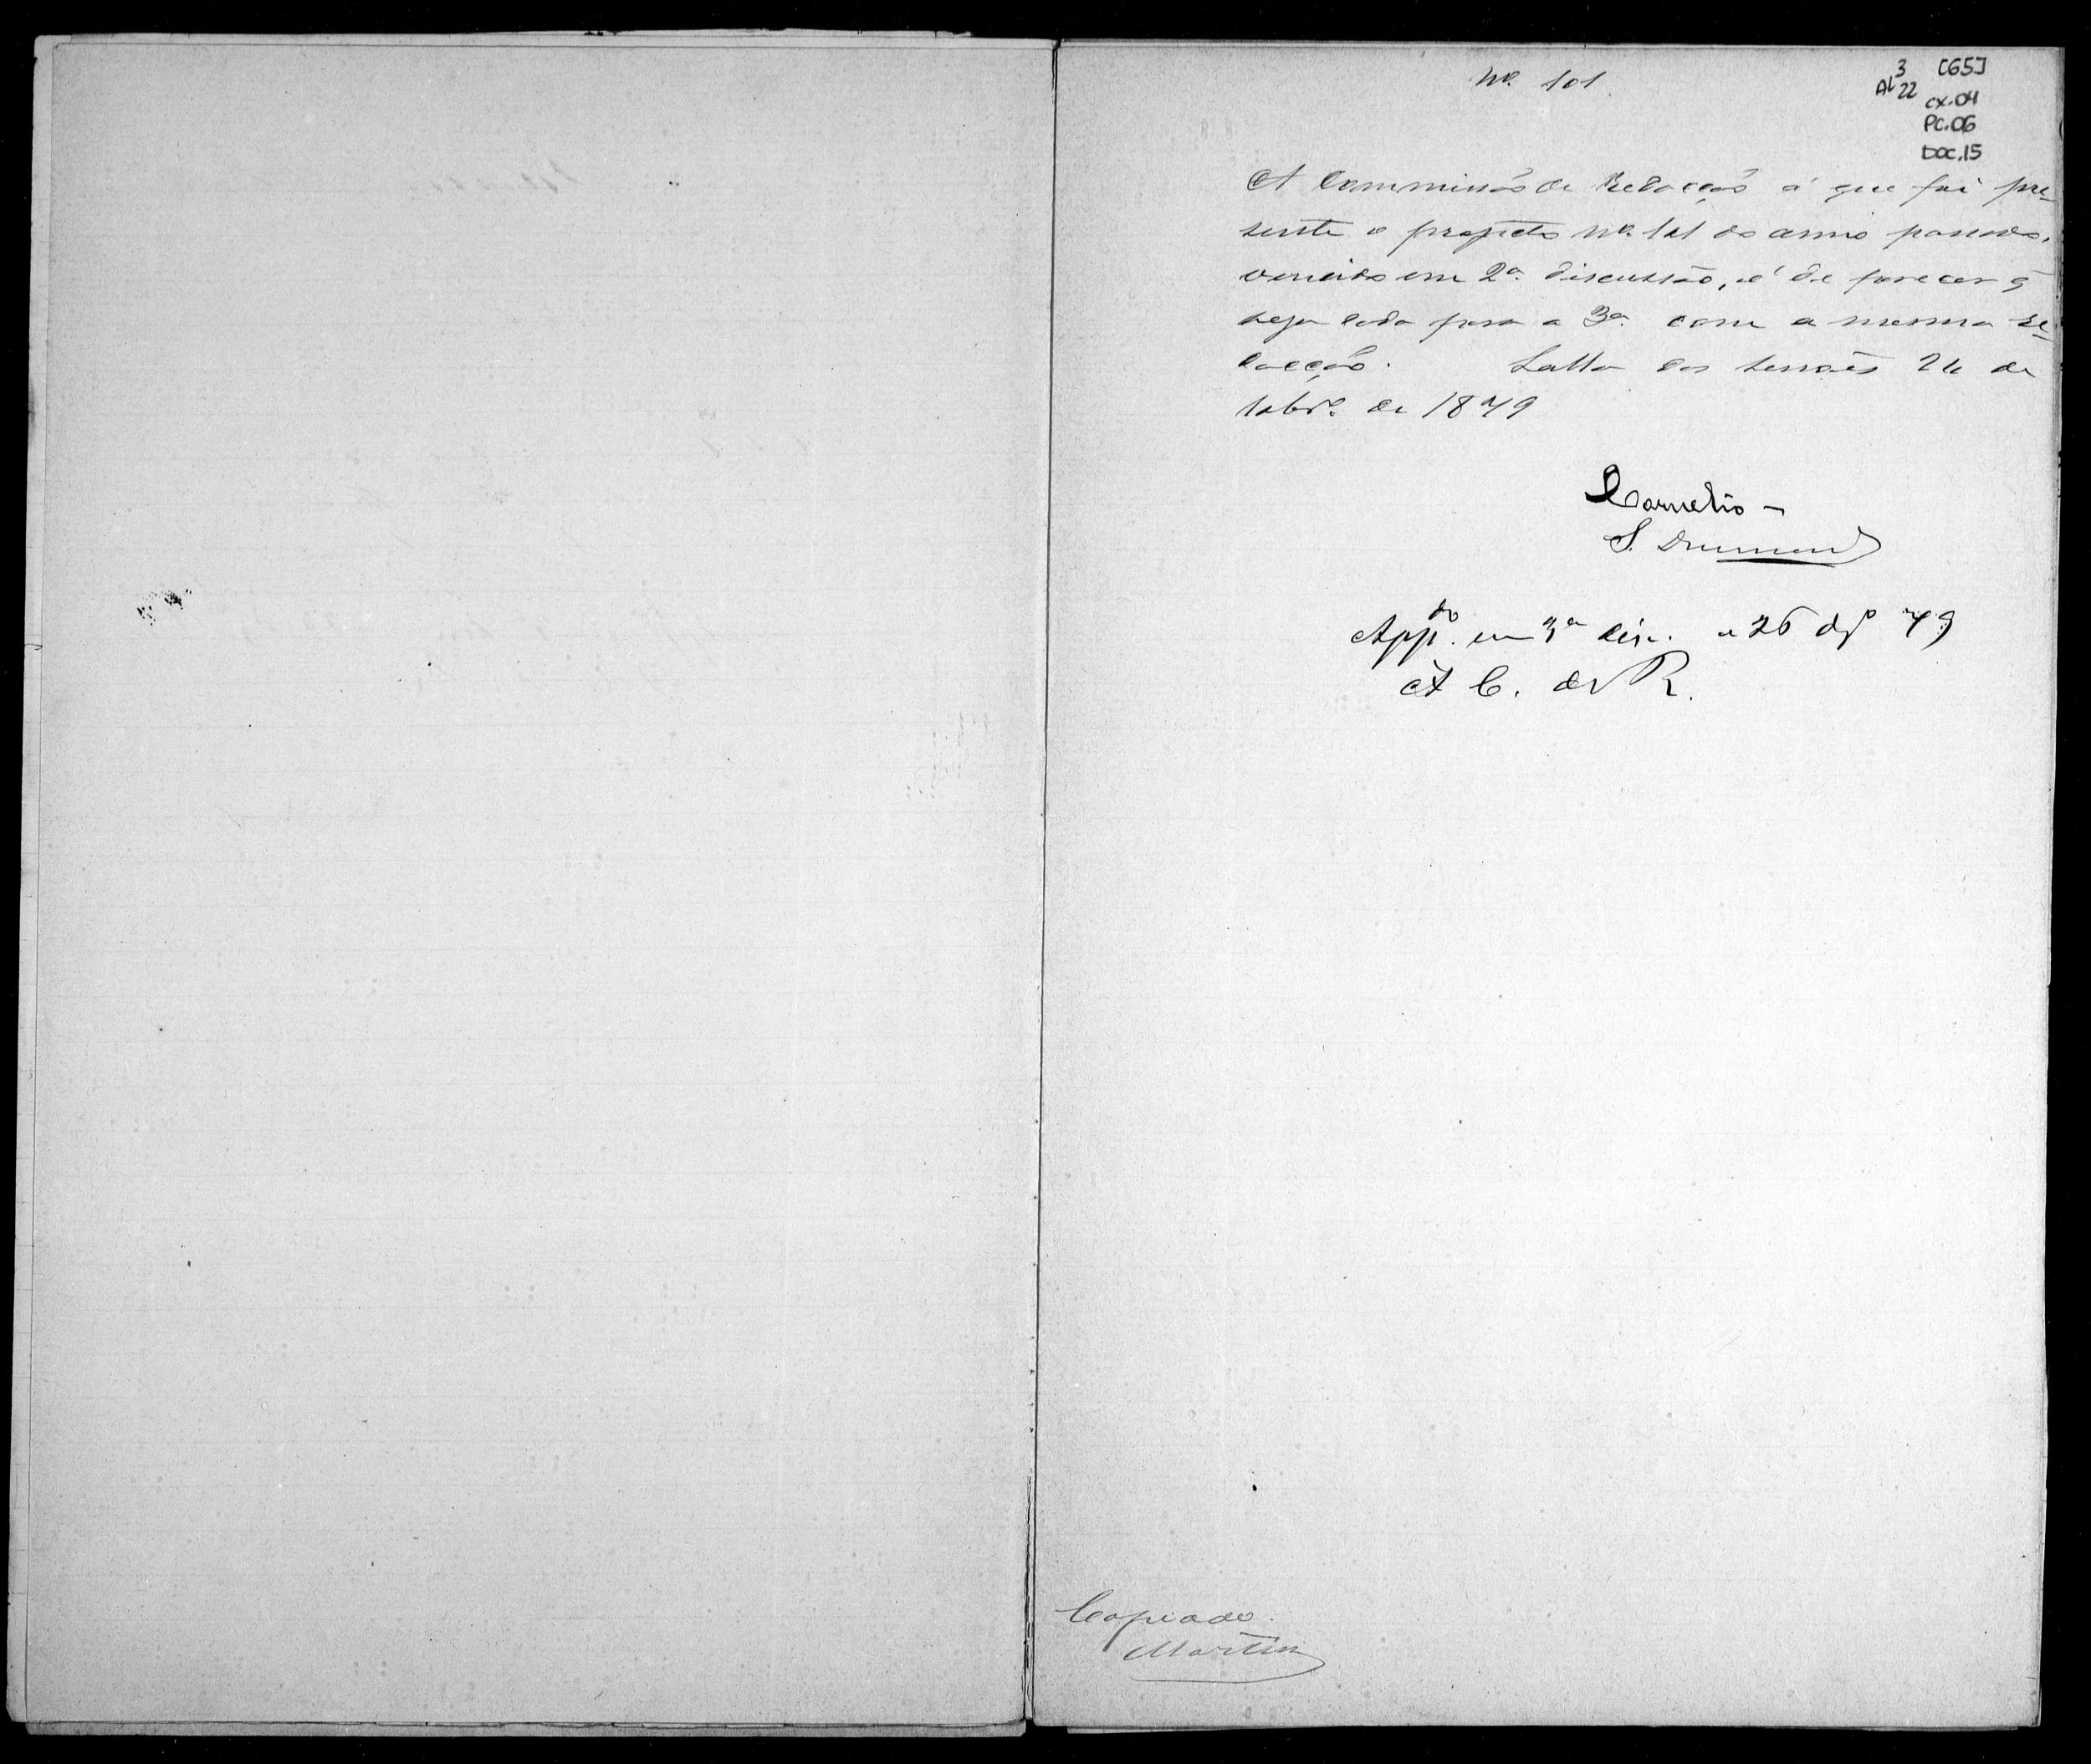 Nº 101.
AL 3 22 [65]
CX.04
PC.06
DOC.15
A Commissão de Redacção á que foi pre-
sente o projecto Nº 101 do anno passado,
vencido em 2ª discussão, é de parecer q̃
seja dado para a 3ª com a mesma re-
dacção. Salla das sessões 24 de
1879
Cornelio -
S. Drumond
Appdo. em 3ª dis. a 26 79
A C. de R.
Copiado.
Martins